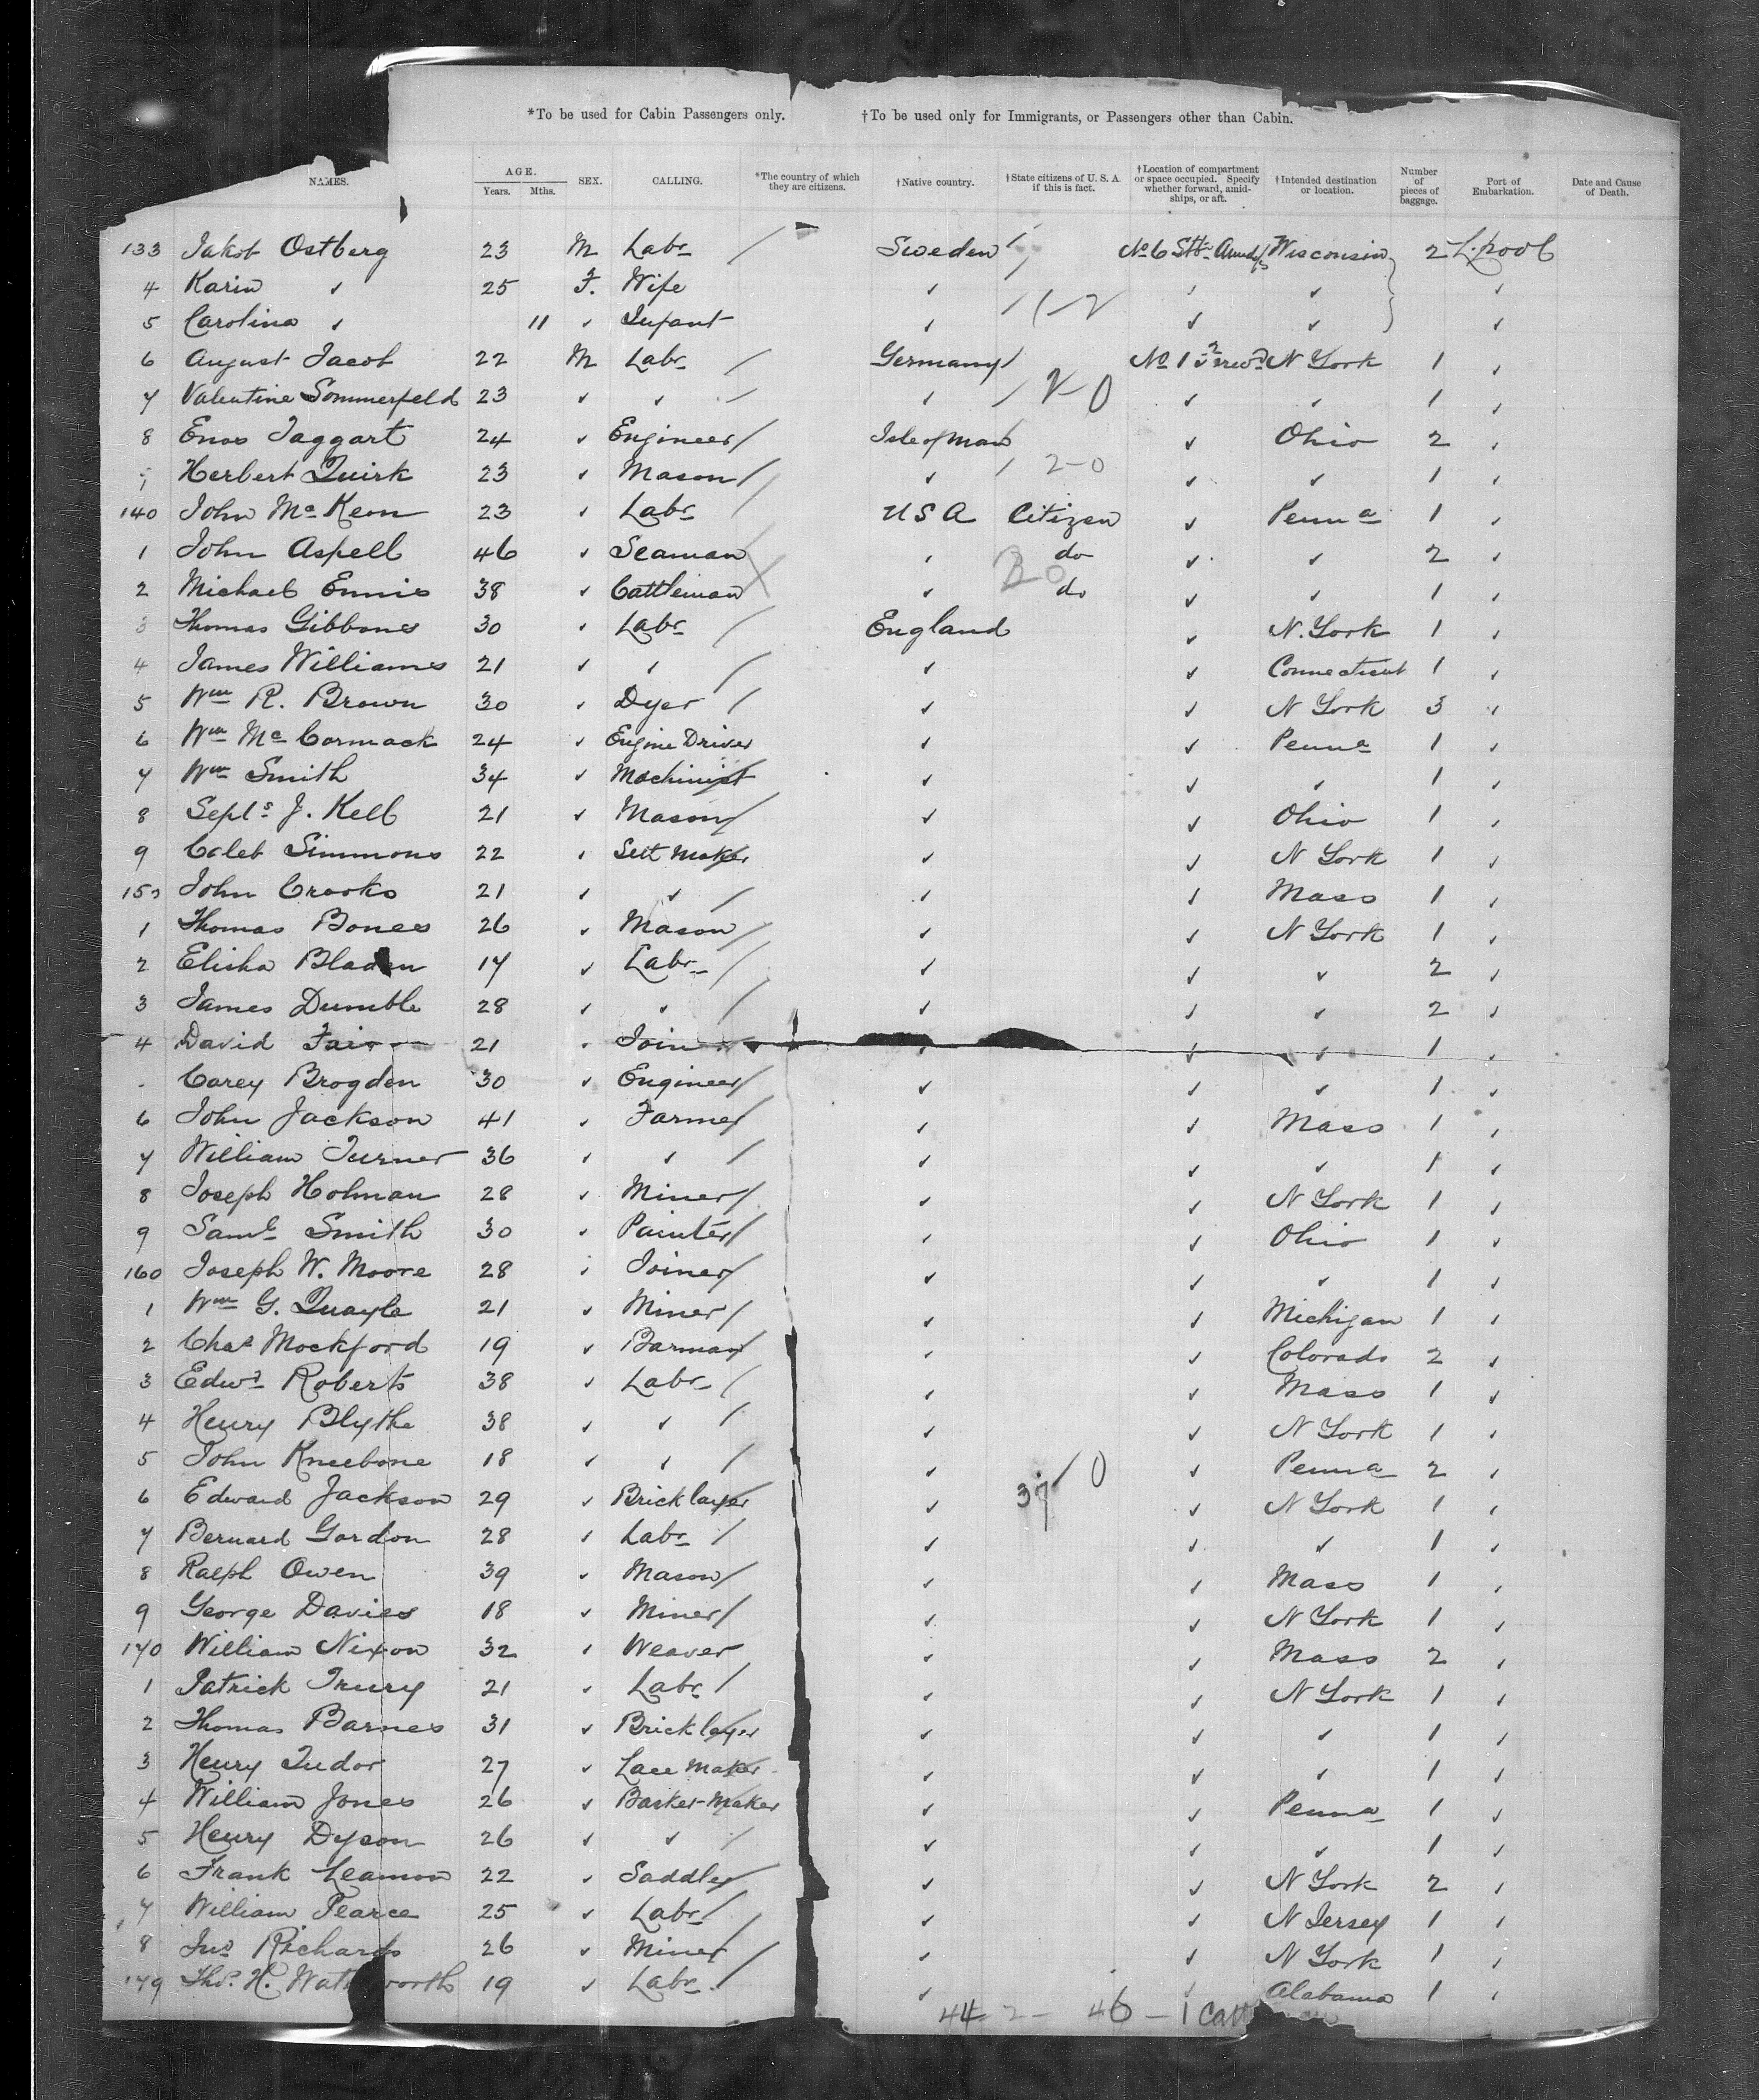 *To be used for Cabin Passengers only. †To be used only for Immigrants, or Passengers other than Cabin.
NAMES. AGE. Years. Mths. SEX. CALLING. *The country of which they are citizens. †Native country. †State citizens of U. S. A. if this is fact. †Location of compartment or space occupied. Specify whether forward, amid-ships, or aft. †Intended destination or location. Number of pieces of baggage. Port of Embarkation. Date and Cause of Death.
133 Jakob Ostberg 23 M Labr Sweden No 6 Wisconsin 2 L.pool
4 Karin ✓ 25 F. Wife ✓ ✓ ✓ ✓
5 Carolina ✓ 11 ✓ Infant ✓ ✓ ✓ ✓
6 August Jacob 22 M Labr Germany No 1 N York 1 ✓
7 Valentine Sommerfeld 23 ✓ ✓ ✓ 2-0 ✓ ✓ 1 ✓
8 Enos Taggart 24 ✓ Engineer Isle of Man ✓ Ohio 2 ✓
Herbert Quirk 23 ✓ Mason ✓ 2-0 ✓ ✓ 1 ✓
140 John Mc Keon 23 ✓ Labr U S A Citizen ✓ Penna 1 ✓
1 John Aspell 46 ✓ Seaman ✓ do ✓ ✓ 2 ✓
2 Michael Ennis 38 ✓ Cattleman ✓ do ✓ ✓ 1 ✓
3 Thomas Gibbons 30 ✓ Labr England ✓ N. York 1 ✓
4 James Williams 21 ✓ ✓ ✓ ✓ Connecticut 1 ✓
5 Wm R. Brown 30 ✓ Dyer ✓ ✓ N York 3 ✓
6 Wm Mc Cormack 24 ✓ Engine Driver ✓ ✓ Penna 1 ✓
7 Wm Smith 34 ✓ Machinist ✓ ✓ ✓ 1 ✓
8 Septs J. Kell 21 ✓ Mason ✓ ✓ Ohio 1 ✓
9 Caleb Simmons 22 ✓ Sett Maker ✓ ✓ N York 1 ✓
150 John Crooks 21 ✓ ✓ ✓ ✓ Mass 1 ✓
1 Thomas Bones 26 ✓ Mason ✓ ✓ N York 1 ✓
2 Elisha Bladen 17 ✓ Labr ✓ ✓ ✓ 2 ✓
3 James Dumble 28 ✓ ✓ ✓ ✓ ✓ 2 ✓
4 David Fair 21 ✓ Join ✓ ✓ ✓ 1 ✓
Carey Brogden 30 ✓ Engineer ✓ ✓ ✓ 1 ✓
6 John Jackson 41 ✓ Farmer ✓ ✓ Mass 1 ✓
7 William Turner 36 ✓ ✓ ✓ ✓ ✓ 1 ✓
8 Joseph Holman 28 ✓ Miner ✓ ✓ N York 1 ✓
9 Saml Smith 30 ✓ Painter ✓ ✓ Ohio 1 ✓
160 Joseph W. Moore 28 ✓ Joiner ✓ ✓ ✓ 1 ✓
1 Wm G. Quayle 21 ✓ Miner ✓ ✓ Michigan 1 ✓
2 Chas Mockford 19 ✓ Barman ✓ ✓ Colorado 2 ✓
3 Edwd Roberts 38 ✓ Labr ✓ ✓ Mass 1 ✓
4 Henry Blythe 38 ✓ ✓ ✓ ✓ N York 1 ✓
5 John Kneebone 18 ✓ ✓ ✓ ✓ Penna 2 ✓
6 Edward Jackson 29 ✓ Bricklayer ✓ 37 0 ✓ N York 1 ✓
7 Bernard Gordon 28 ✓ Labr ✓ ✓ ✓ 1 ✓
8 Ralph Owen 39 ✓ Mason ✓ ✓ Mass 1 ✓
9 George Davies 18 ✓ Miner ✓ ✓ N York 1 ✓
170 William Nixon 32 ✓ Weaver ✓ ✓ Mass 2 ✓
1 Patrick Trury 21 ✓ Labr ✓ ✓ N York 1 ✓
2 Thomas Barnes 31 ✓ Bricklayer ✓ ✓ ✓ 1 ✓
3 Henry Tudor 27 ✓ Lace Maker ✓ ✓ ✓ 1 ✓
4 William Jones 26 ✓ Basket-Maker ✓ ✓ Penna 1 ✓
5 Henry Dyson 26 ✓ ✓ ✓ ✓ ✓ 1 ✓
6 Frank Leamon 22 ✓ Saddler ✓ ✓ N York 2 ✓
7 William Pearce 25 ✓ Labr ✓ ✓ N Jersey 1 ✓
8 Jno Richards 26 ✓ Miner ✓ ✓ N York 1 ✓
179 Thos. H. Wat worth 19 ✓ Labr ✓ ✓ Alabama 1 ✓
44 2 - 46 - 1 Catt